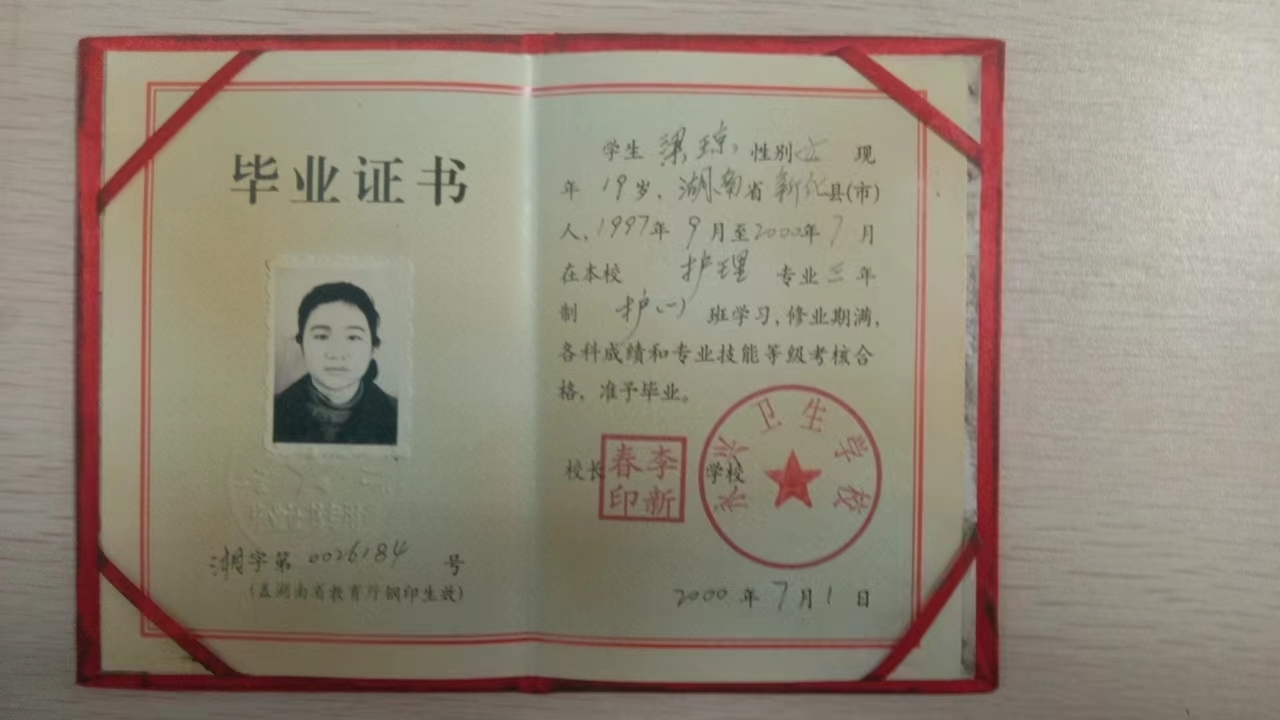 毕业证书
湘字第0026184号
(盖湖南省教育厅钢印生效)
学生 梁琼 性别女 现
年 19岁、湖南省新化县(市)
人、1997年 9月至2000年 7月
在本校 护理 专业三年
制 护(一) 班学习,修业期满,
各科成绩和专业技能等级考核合
格,准予毕业。
校长
李新春印
学校
永兴卫生学校
2000年 7月 1日